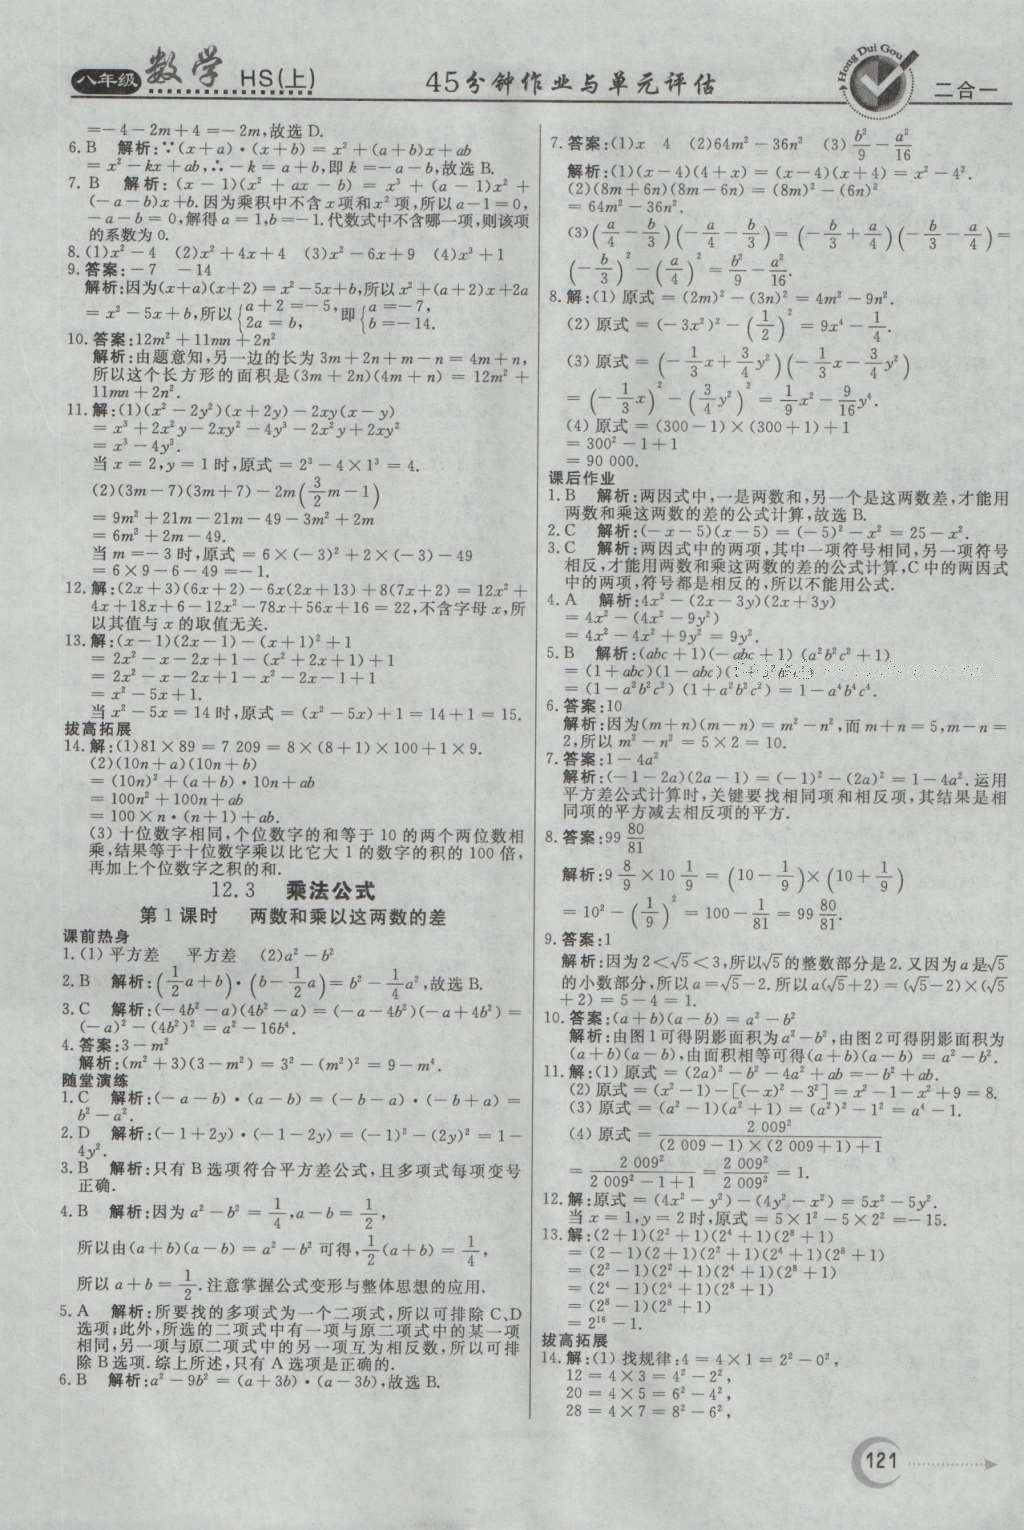 八年级 数学 HS(上)
45分钟作业与单元评估
Hong Dui Gou
二合一
=-4-2m+4=-2m,故选D.
6. B 解析:∵(x+a)·(x+b)=x²+(a+b)x+ab
=x²-kx+ab,∴-k=a+b,即k=-a-b,故选B.
7. B 解析:(x-1)(x²+ax-b)=x³+(a-1)x²+
(-a-b)x+b.因为乘积中不含x项和x²项,所以a-1=0,
-a-b=0,解得a=1,b=-1.代数式中不含哪一项,则该项
的系数为0.
8. (1)x²-4 (2)x²+4x+4 (3)x²-6x+9 (4)x³+1
9. 答案:-7 -14
解析:因为(x+a)(x+2)=x²-5x+b,所以x²+(a+2)x+2a
=x²-5x+b,所以{a+2=-5, 2a=b, 即{a=-7, b=-14.
10. 答案:12m²+11mn+2n²
解析:由题意知,另一边的长为3m+2n+m-n=4m+n,
所以这个长方形的面积是(3m+2n)(4m+n)=12m²+
11mn+2n².
11. 解:(1)(x²-2y²)(x+2y)-2xy(x-y)
=x³+2x²y-2xy²-4y³-2x²y+2xy²
=x³-4y³.
当x=2,y=1时,原式=2³-4×1³=4.
(2)(3m-7)(3m+7)-2m(3/2m-1)
=9m²+21m-21m-49-3m²+2m
=6m²+2m-49.
当m=-3时,原式=6×(-3)²+2×(-3)-49
=6×9-6-49=-1.
12. 解:(2x+3)(6x+2)-6x(2x+13)+8(7x+2)=12x²+
4x+18x+6-12x²-78x+56x+16=22,不含字母x,所
以其值与x的取值无关.
13. 解:(x-1)(2x-1)-(x+1)²+1
=2x²-x-2x+1-(x²+2x+1)+1
=2x²-x-2x+1-x²-2x-1+1
=x²-5x+1.
当x²-5x=14时,原式=(x²-5x)+1=14+1=15.
拔高拓展
14. 解:(1)81×89=7 209=8×(8+1)×100+1×9.
(2)(10n+a)(10n+b)
=(10n)²+(a+b)·10n+ab
=100n²+100n+ab
=100×n·(n+1)+ab.
(3)十位数字相同,个位数字的和等于10的两个两位数相
乘,结果等于十位数字乘以比它大1的数字的积的100倍,
再加上个位数字之积的和.
12.3 乘法公式
第1课时 两数和乘以这两数的差
课前热身
1. (1)平方差 平方差 (2)a²-b²
2. B 解析:(1/2a+b)·(b-1/2a)=b²-1/4a²,故选B.
3. C 解析:(-4b²-a)(4b²-a)=(-a-4b²)(-a+4b²)=
(-a)²-(4b²)²=a²-16b⁴.
4. 答案:3-m²
解析:(m²+3)(3-m²)=3²-(m²)²=9-m⁴.
随堂演练
1. C 解析:(-a-b)·(a-b)=(-b-a)·(-b+a)=
b²-a².
2. D 解析:(-1+2y)·(-1-2y)=(-1)²-(2y)²=1-
4y².
3. B 解析:只有B选项符合平方差公式,且多项式每项变号
正确.
4. B 解析:因为a²-b²=1/4,a-b=1/2,
所以由(a+b)(a-b)=a²-b²可得,1/2(a+b)=1/4,
所以a+b=1/2.注意掌握公式变形与整体思想的应用.
5. A 解析:所要找的多项式为一个二项式,所以可排除C、D
选项;此外,所选的二项式中有一项与原二项式中的某一项
相同,另一项与原二项式中的另一项互为相反数,所以可排
除B选项.综上所述,只有A选项是正确的.
6. B 解析:a²-9b²=(a+3b)·(a-3b),故选B.
7. 答案:(1)x 4 (2)64m²-36n² (3)b²/9-a²/16
解析:(1)(x-4)(4+x)=(x-4)(x+4)=x²-4².
(2)(8m+6n)(8m-6n)=(8m)²-(6n)²
=64m²-36n².
(3)(a/4-b/3)(-a/4-b/3)=(-b/3+a/4)(-b/3-a/4)=
(-b/3)²-(a/4)²=b²/9-a²/16.
8. 解:(1)原式=(2m)²-(3n)²=4m²-9n².
(2)原式=(-3x²)²-(1/2)²=9x⁴-1/4.
(3)原式=(-1/3x+3/4y²)(-1/3x-3/4y²)
=(-1/3x)²-(3/4y²)²=1/9x²-9/16y⁴.
(4)原式=(300-1)×(300+1)+1
=300²-1+1
=90 000.
课后作业
1. B 解析:两因式中,一是两数和,另一个是这两数差,才能用
两数和乘这两数的差的公式计算,故选B.
2. C 解析:(-x-5)(x-5)=(-5)²-x²=25-x².
3. C 解析:两因式中的两项,其中一项符号相同,另一项符号
相反,才能用两数和乘这两数的差的公式计算,C中的两因式
中的两项,符号都是相反的,所以不能用公式.
4. A 解析:4x²-(2x-3y)(2x+3y)
=4x²-(4x²-9y²)
=4x²-4x²+9y²=9y².
5. B 解析:(abc+1)(-abc+1)(a²b²c²+1)
=(1+abc)(1-abc)(1+a²b²c²)
=(1-a²b²c²)(1+a²b²c²)=1-a⁴b⁴c⁴.
6. 答案:10
解析:因为(m+n)(m-n)=m²-n²,而m+n=5,m-n=
2,所以m²-n²=5×2=10.
7. 答案:1-4a²
解析:(-1-2a)(2a-1)=(-1)²-(2a)²=1-4a².运用
平方差公式计算时,关键要找相同项和相反项,其结果是相
同项的平方减去相反项的平方.
8. 答案:99 80/81
解析:9 8/9×10 1/9=(10-1/9)×(10+1/9)
=10²-(1/9)²=100-1/81=99 80/81.
9. 答案:1
解析:因为2<√5<3,所以√5的整数部分是2.又因为a是√5
的小数部分,所以a=√5-2.所以a(√5+2)=(√5-2)×(√5
+2)=5-4=1.
10. 答案:(a+b)(a-b)=a²-b²
解析:由图1可得阴影面积为a²-b²,由图2可得阴影面积为
(a+b)(a-b),由面积相等可得(a+b)(a-b)=a²-b².
11. 解:(1)原式=(2a)²-b²-4a²+ab=-b²+ab.
(2)原式=(x²-1)-[(-x)²-3²]=x²-1-x²+9=8.
(3)原式=(a²-1)(a²+1)=(a²)²-1²=a⁴-1.
(4)原式=2 009²/((2 009-1)×(2 009+1)+1)
=2 009²/(2 009²-1+1)=2 009²/2 009²=1.
12. 解:原式=(4x²-y²)-(4y²-x²)=5x²-5y².
当x=1,y=2时,原式=5×1²-5×2²=-15.
13. 解:(2+1)(2²+1)(2⁴+1)(2⁸+1)
=(2-1)(2+1)(2²+1)(2⁴+1)(2⁸+1)
=(2²-1)(2²+1)(2⁴+1)(2⁸+1)
=(2⁴-1)(2⁴+1)(2⁸+1)
=(2⁸-1)(2⁸+1)
=2¹⁶-1.
拔高拓展
14. 解:(1)找规律:4=4×1=2²-0²,
12=4×3=4²-2²,
20=4×5=6²-4²,
28=4×7=8²-6²,
121